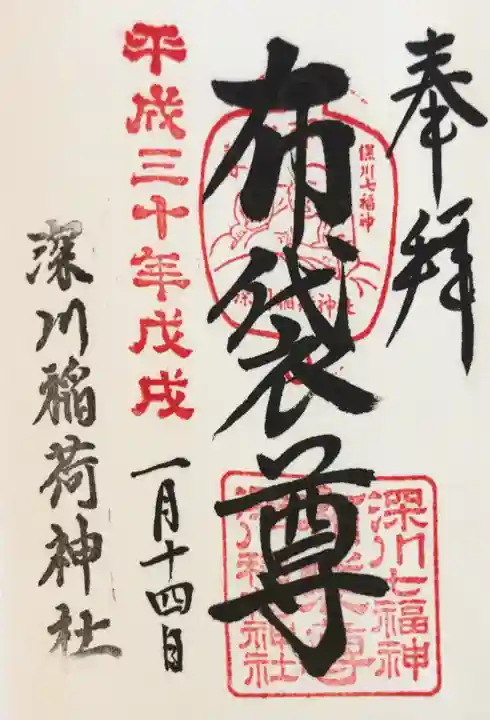 奉拝
深川七福神
深川稲荷神社
布袋尊
深川七福神
布袋尊
深川稲荷神社
平成三十年戊戌
一月十四日
深川稲荷神社